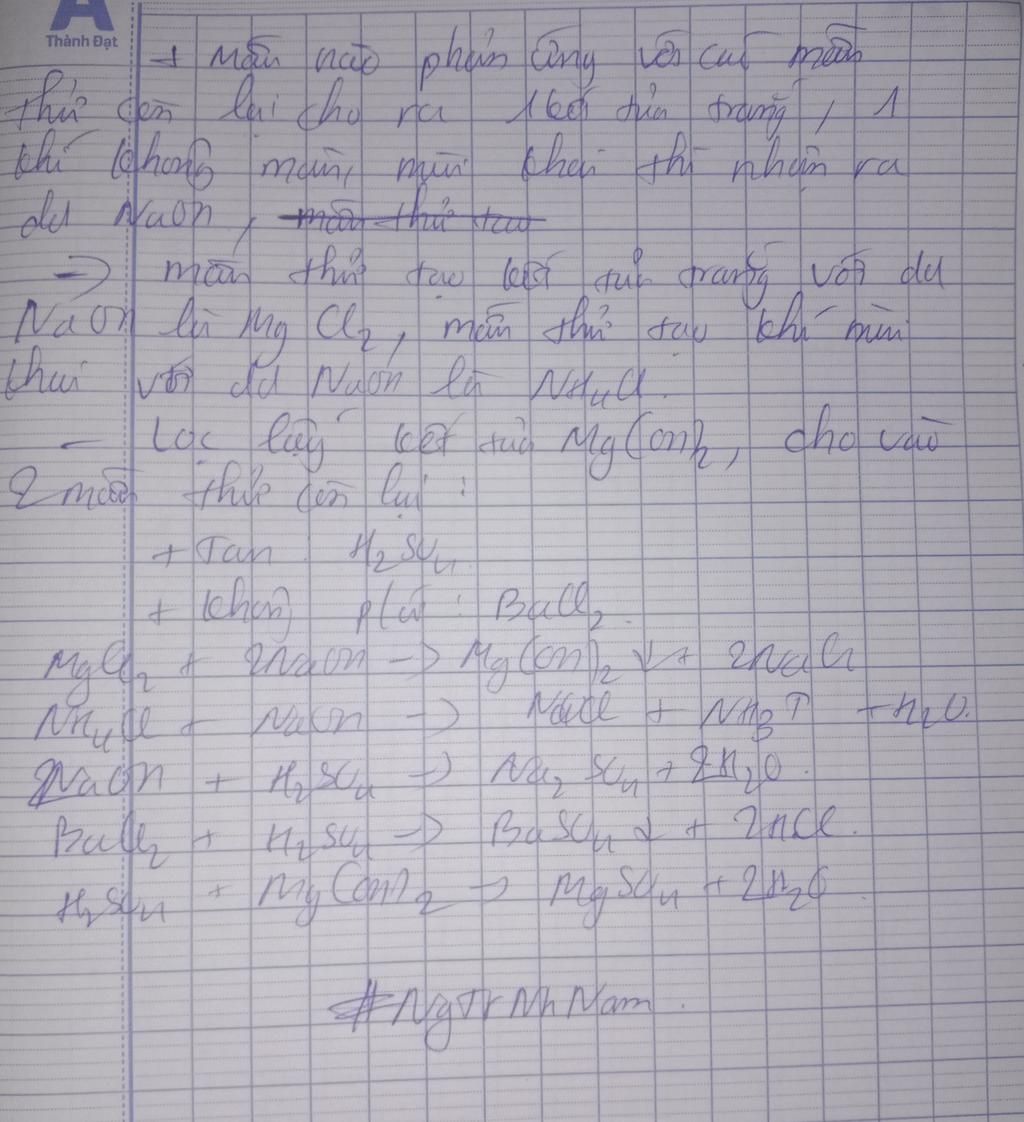 A
Thành Đạt
+ Mẫu nào phản ứng với các mẫu
thử còn lại cho ra 1 kết tủa trắng, 1
khí không màu, mùi khai thì nhận ra
dd NaOH, mẫu thử tạo
-> mẫu thử tạo kết tủa trắng với dd
NaOH là MgCl₂, mẫu thử tạo khí mùi
khai với dd NaOH là NH₄Cl.
- Lọc lấy kết tủa Mg(OH)₂, cho vào
2 mẫu thử còn lại :
+ Tan : H₂SO₄
+ Không pứ : BaCl₂.
MgCl₂ + 2NaOH -> Mg(OH)₂ ↓ + 2NaCl
NH₄Cl + NaOH -> NaCl + NH₃ ↑ + H₂O.
2NaOH + H₂SO₄ -> Na₂SO₄ + 2H₂O.
BaCl₂ + H₂SO₄ -> BaSO₄ ↓ + 2HCl.
H₂SO₄ + Mg(OH)₂ -> MgSO₄ + 2H₂O
#NgTrNhNam.